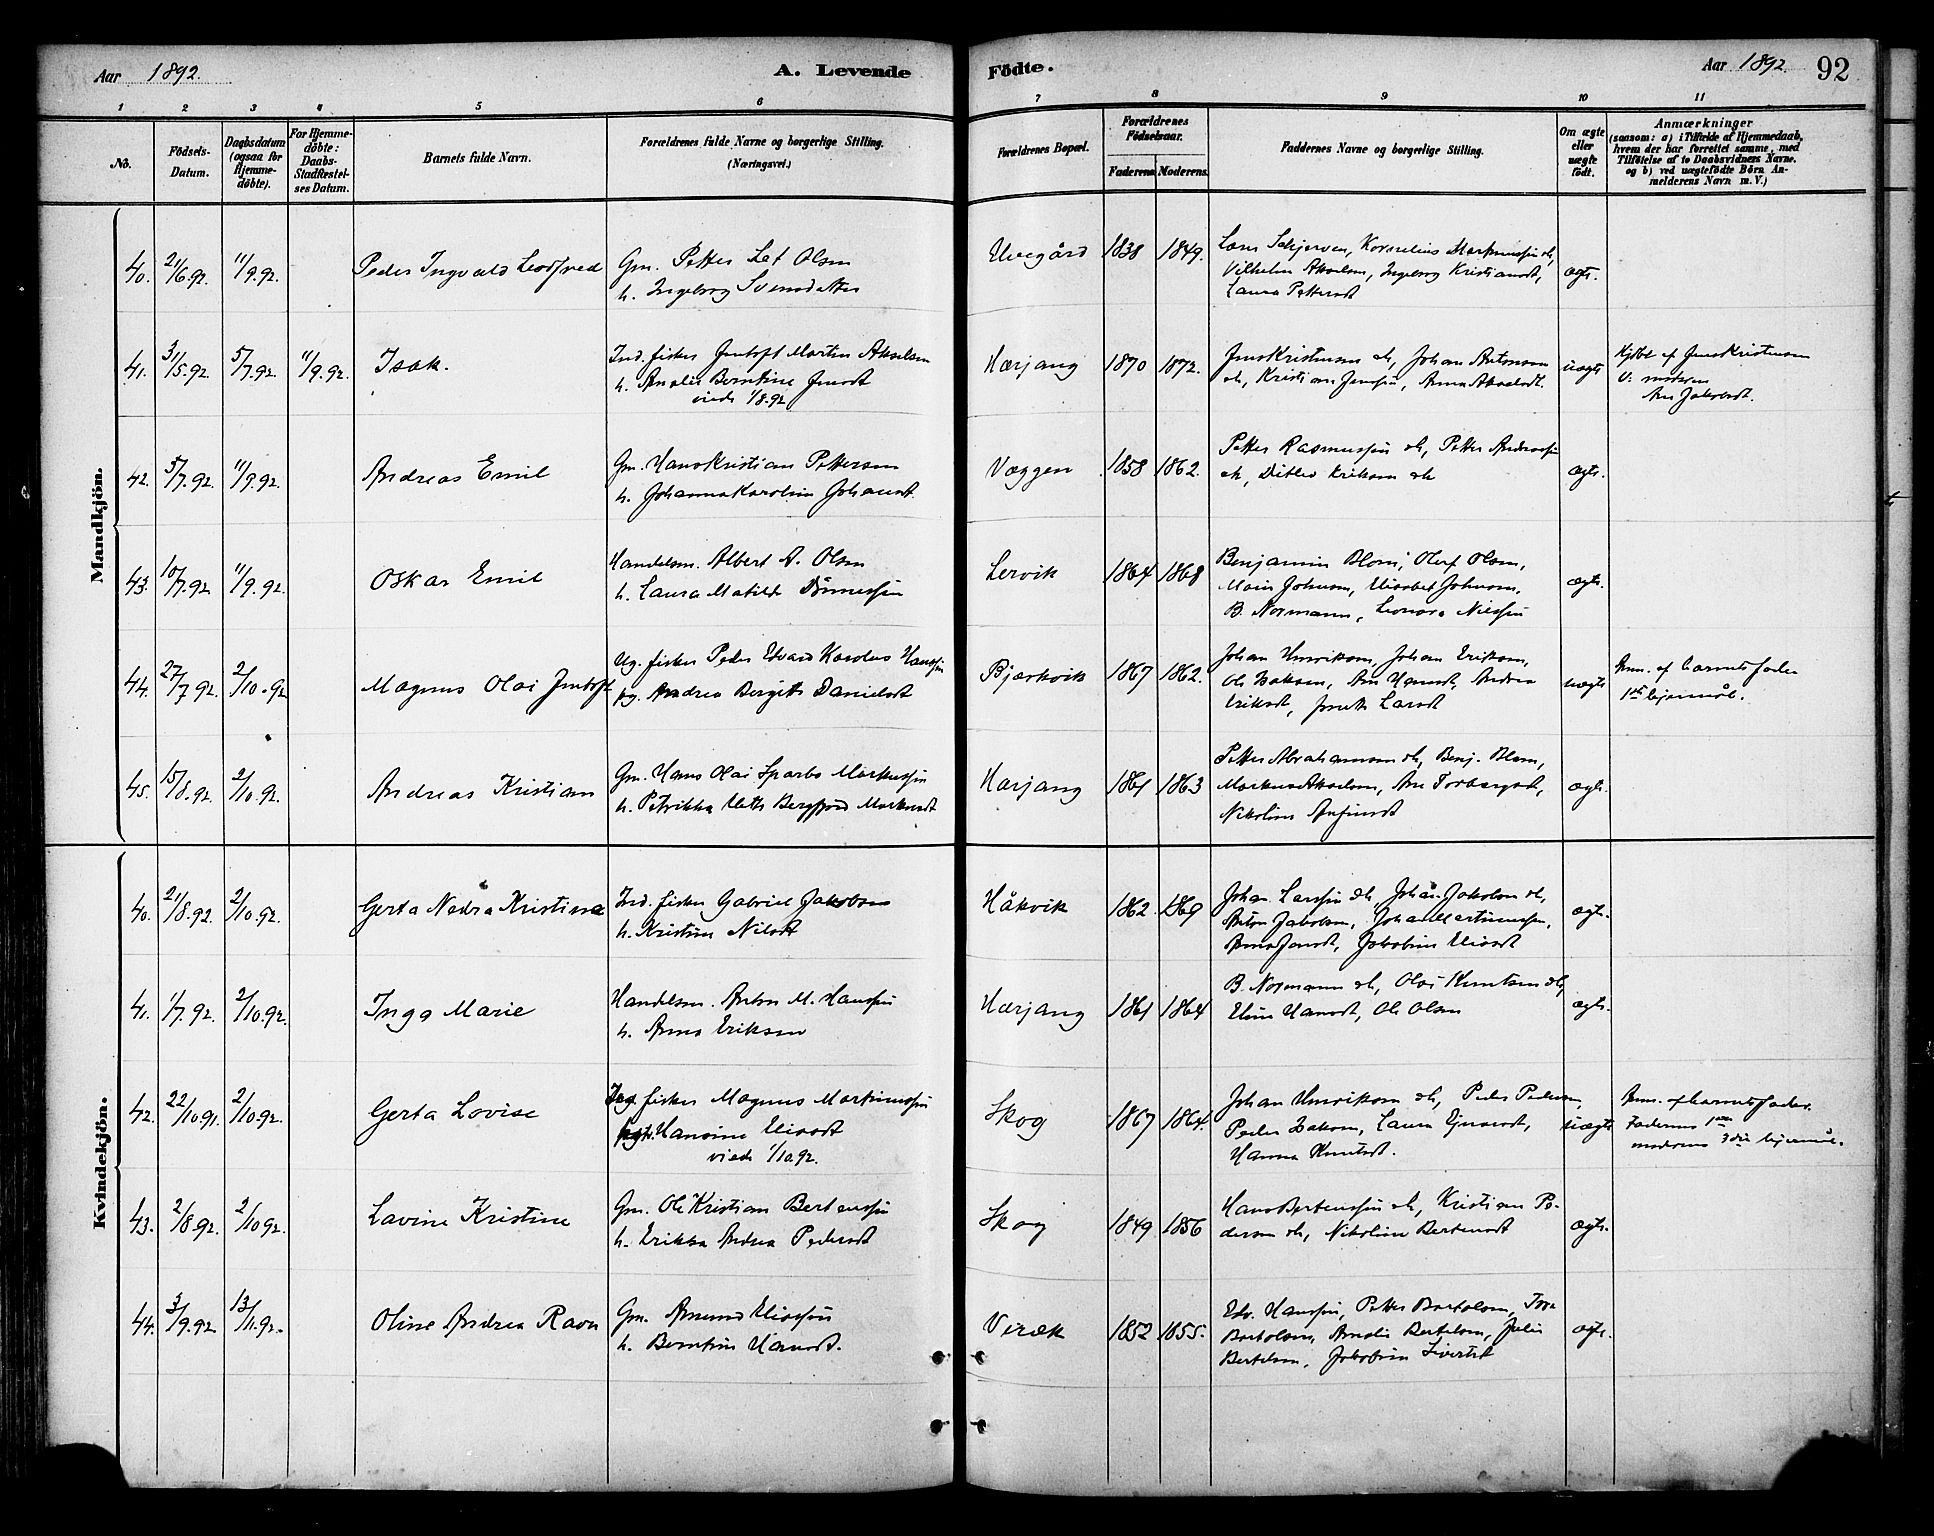 Aar 1892.
A. Levende
Födte.
Aar 1892. 92
1 2 3 4 5 6 7 8 9 10 11
No.
Födsels-Datum.
Daabsdatum (ogsaa for Hjemmedöbte).
For Hjemmedöbte: Daabs-Stadfæstelses Datum.
Barnets fulde Navn.
Forældrenes fulde Navne og borgerlige Stilling. (Næringsvei.)
Forældrenes Bopæl.
Forældrenes Födselsaar.
Faderens Moderens.
Faddernes Navne og borgerlige Stilling.
Om ægte eller uægte födt.
Anmærkninger
(saasom: a) i Tilfælde af Hjemmedaab,
hvem der har forrettet samme, med
Tilföielse af to Daabsvidners Navne.
og b) ved uægtefödte Börn An-
melderens Navn m. V.)
Mandkjön.
40. 21/6.92. 11/9.92. Peder Ingvald Leodfred
Gm. Petter Olsen
h. Ingeborg Svensdatter
1838 1849.
Kornelius
Vilhelm Akselsen, Ingeborg Kristiansdt,
Laura Pettersdt
ægte.
41. 31/5.92. 5/7.92. 11/9.92. Isak.
Ind. fisker Jentoft Martin Akselsen
h. Analie Berntine Jensdt
viede 1/8.92
Hærjang 1870 1872.
Jens Kristensen Johan Antonsen
Kristian Jenssen, Anna Akselsdt.
uægte
Hjdbt af Jens Kristensen
V: moderen
Ane Jakobsdt.
42. 5/7.92. 11/9.92. Andreas Emil
Gm. Hans Kristian Pettersen
h. Johanna Karoline Johansdt.
Væggen 1858 1862.
Petter Rasmussen Petter Andreassen
Ditlev Eriksen
ægte.
43. 10/7.92. 11/9.92. Oskar Emil
Handelsm. Albert A. Olsen
h. Laura Matilde Dönnessen
Lervik 1864 1868
Benjamin Blom, Oluf Olsen,
Marie Johnsen, Elisabet Johnsen,
B. Normann, Leonora Nilssen
ægte.
44. 27/7.92. 2/10.92 Magnus Olai Jentoft
Ug. fisker Peder Edvard Kordius Hanssen
pg. Andrea Bergitte Danielsdt
Bjærkvik 1867 1862.
Johan Henriksen, Johan Eriksen,
Ole Isaksen, Ane Hansdt, Andrea
Eriksdt, Larsdt
uægte
Anm. af barnets fader
1ste leiermål.
45. 15/8.92. 2/10.92. Andreas Kristian
Gm. Hans Olai Sparbo Markussen
h. Petrikka Bergfjord Markusdt
Hærjang 1861 1863
Petter Abrahamsen Benj. Blom,
Markus Akselsen, Ane Torbergsdt,
Nikoline Anfinsdt
ægte.
Kvindekjön.
40. 21/8.92 2/10.92. Gerta Nedra Kristine
Ind. fisker Gabriel Jakobsen
h. Kristine Nilsdt
Håkvik 1862 1869
Johan Larssen Johan Jakobsen
Anton Jakobsen, Johan Martinussen,
Anna Jensdt, Jakobine Eliasdt
ægte.
41. 1/7.92. 2/10.92. Inga Marie
Handelsm. Anton M. Hanssen
h. Anna Eriksen
Hærjang 1861 1864
B. Normann Olai Knutsen
Eline Hansdt, Ole Olsen
ægte.
42. 22/10.91. 2/10.92. Gerta Lovise
Ind. fisker Magnus Martinussen
h. Hansine Eliasdt
viede 1/10.92.
Skog 1867 1864.
Johan Henriksen Peder Pedersen,
Peder Isaksen, Laura
Hanna Knutsdt.
uægte
Anm. af barnets fader.
Faderens 1ste
moderens 3die leiermål.
43. 2/8.92. 2/10.92. Lavine Kristine
Gm. Ole Kristian Bertenssen
h. Erikka Andrea Pedersdt
Skog 1849 1856
Hans Bertenssen Kristian Pe-
dersen Nikoline Bertensdt
ægte.
44. 3/9.92 13/11.92. Oline Andrea Ravn
Gm. Amund Eliassen
h. Berntine Hansdt.
Viræk 1852 1855.
Edv. Hanssen, Petter Bartolsen,
Bartolsen, Amalie Bertelsen, Julie
Bertelsen, Jakobine Sivertsd
ægte.